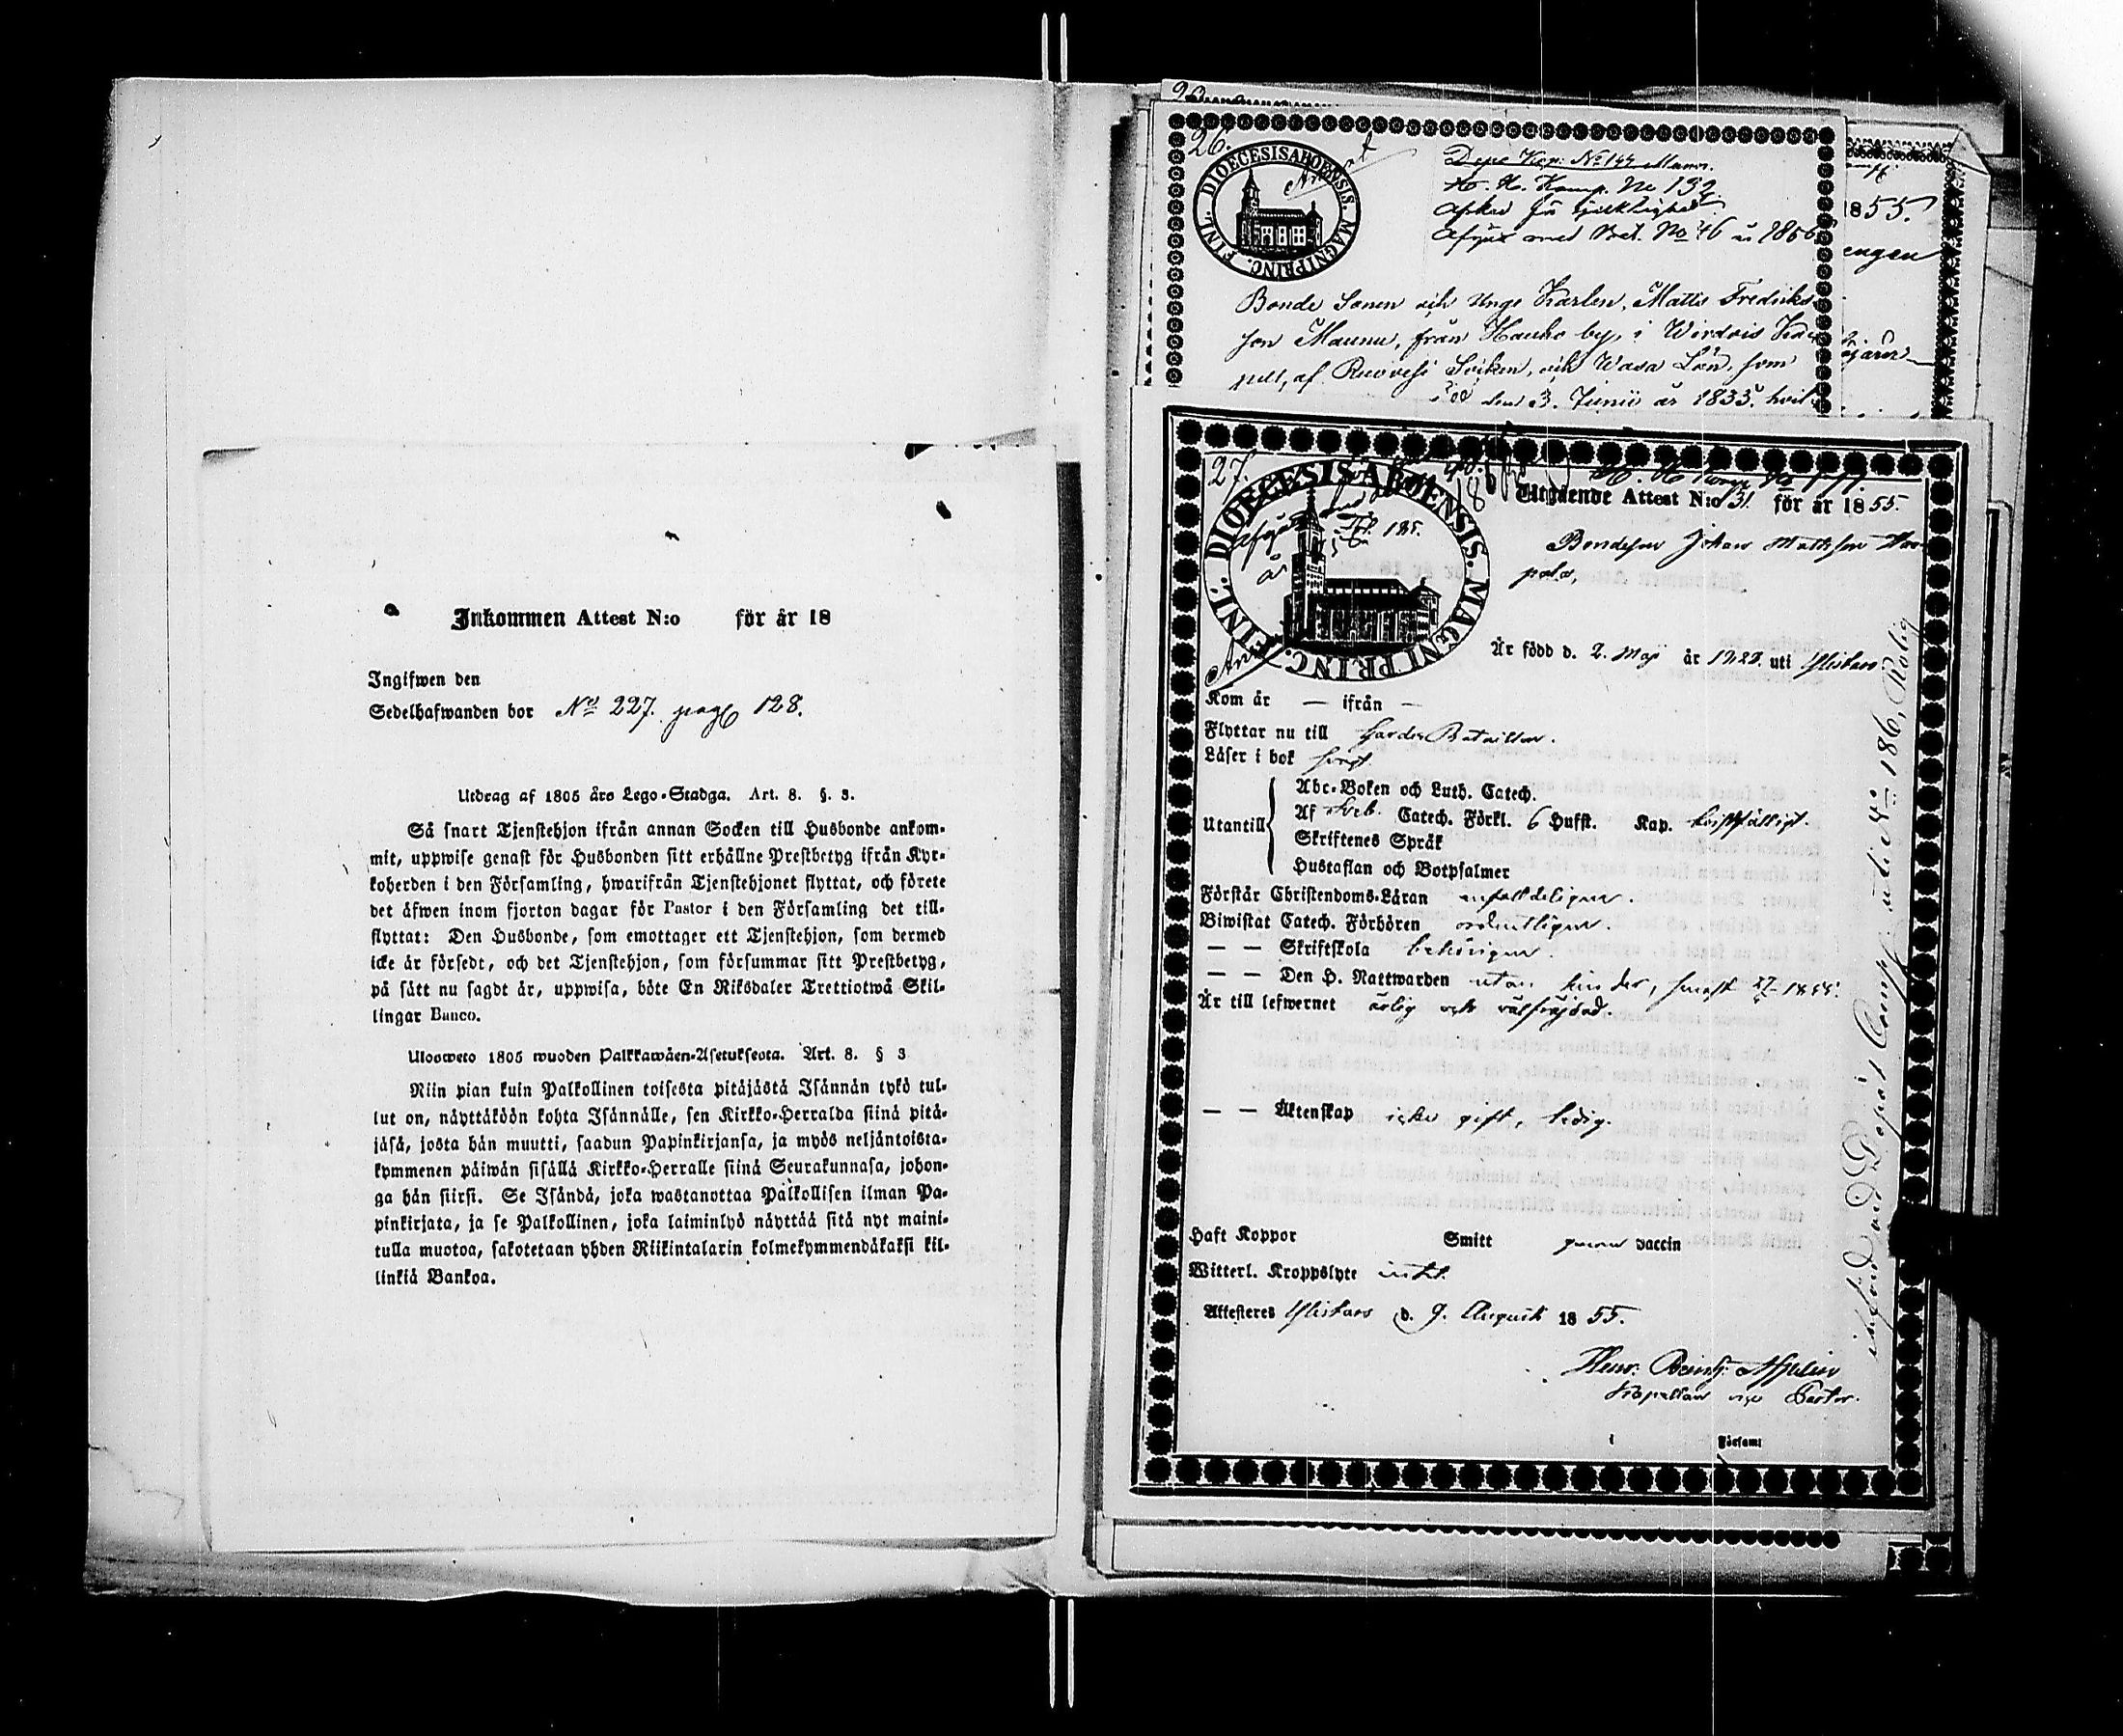 Inkommen Attest N:o för år 18
Ingifwen den
Sedelhafwanden bor No 227. pag 128.
Utdrag af 1805 års Lego-Stadga. Art. 8. §. 3.
Så snart Tjenstehjon ifrån annan Socken till Husbonde ankom-
mit, uppwise genast för Husbonden sitt erhållne Prestbetyg ifrån Kyr-
koherden i den Församling, hwarifrån Tjenstehjonet flyttat, och förete
det äfwen inom fjorton dagar för Pastor i den Församling det till-
flyttat: Den Husbonde, som emottager ett Tjenstehjon, som dermed
icke är försedt, och det Tjenstehjon, som försummar sitt Prestbetyg,
på sätt nu sagdt är, uppwisa, böte En Riksdaler Trettiotwå Skil-
lingar Banco.
Ulosweto 1805 wuoden Palkkawäen-Asetuksesta. Art. 8. § 3
Niin pian kuin Palkollinen toisesta pitäjästä Isännän tykö tul-
lut on, näyttäköön kohta Isännälle, sen Kirkko-Herralda siinä pitä-
jäsä, josta hän muutti, saadun Papinkirjansa, ja myös neljäntoista-
kymmenen päiwän sisällä Kirkko-Herralle siinä Seurakunnasa, johon-
ga hän siirsi. Se Isändä, joka wastanottaa Palkollisen ilman Pa-
pinkirjata, ja se Palkollinen, joka laiminlyö näyttää sitä nyt maini-
tulla muotoa, sakotetaan yhden Riikintalarin kolmekymmendäkaksi kil-
linkiä Bankoa.
26.
DIOECESIS ABOENSIS. MAGNI PRINC. FINL.
Depe Kop: No 144 Maunu.
No 132
Afgår med Bet. No 46 år 1856
Bonde Sonen och Unge Karlen, Mattis Fredriks
son Maunu, från Hauho by, i Wirdois Kap
pell, af Ruovesi Socken, och Wasa Län, som
född den 3. Junii år 1833.
1855.
27.
DIOECESIS ABOENSIS. MAGNI PRINC. FINL.
Utgående Attest N:o 31. för år 1855.
Bondeson Johan Mattsson
pala,
Är född d. 2. Maji år 1828. uti Ylistaro
Kom år — ifrån —
Flyttar nu till Gardes Bataillon.
Läser i bok
Utantill
Abc-Boken och Luth. Catech.
Af Sveb. Catech. Förkl. 6 Hufst. Kap.
Skriftenes Språk
Hustaflan och Botpsalmer
Förstår Christendoms-Läran enfaldeligen.
Biwistat Catech. Förhören ordentligen.
— — Skriftskola behörigen.
— — Den H. Nattwarden utan hinder, senast
Är till lefwernet ärlig och välfräjdad.
— — Äktenskap icke gift, ledig.
Haft Koppor Smitt genom vaccin
Witterl. Kroppslyte intet.
Attesteres Ylistaro d. 9. Augusti 1855.
Kapellan vice Pastor.
i Församl
införd vid Depot Comp. under No 186, Rolig